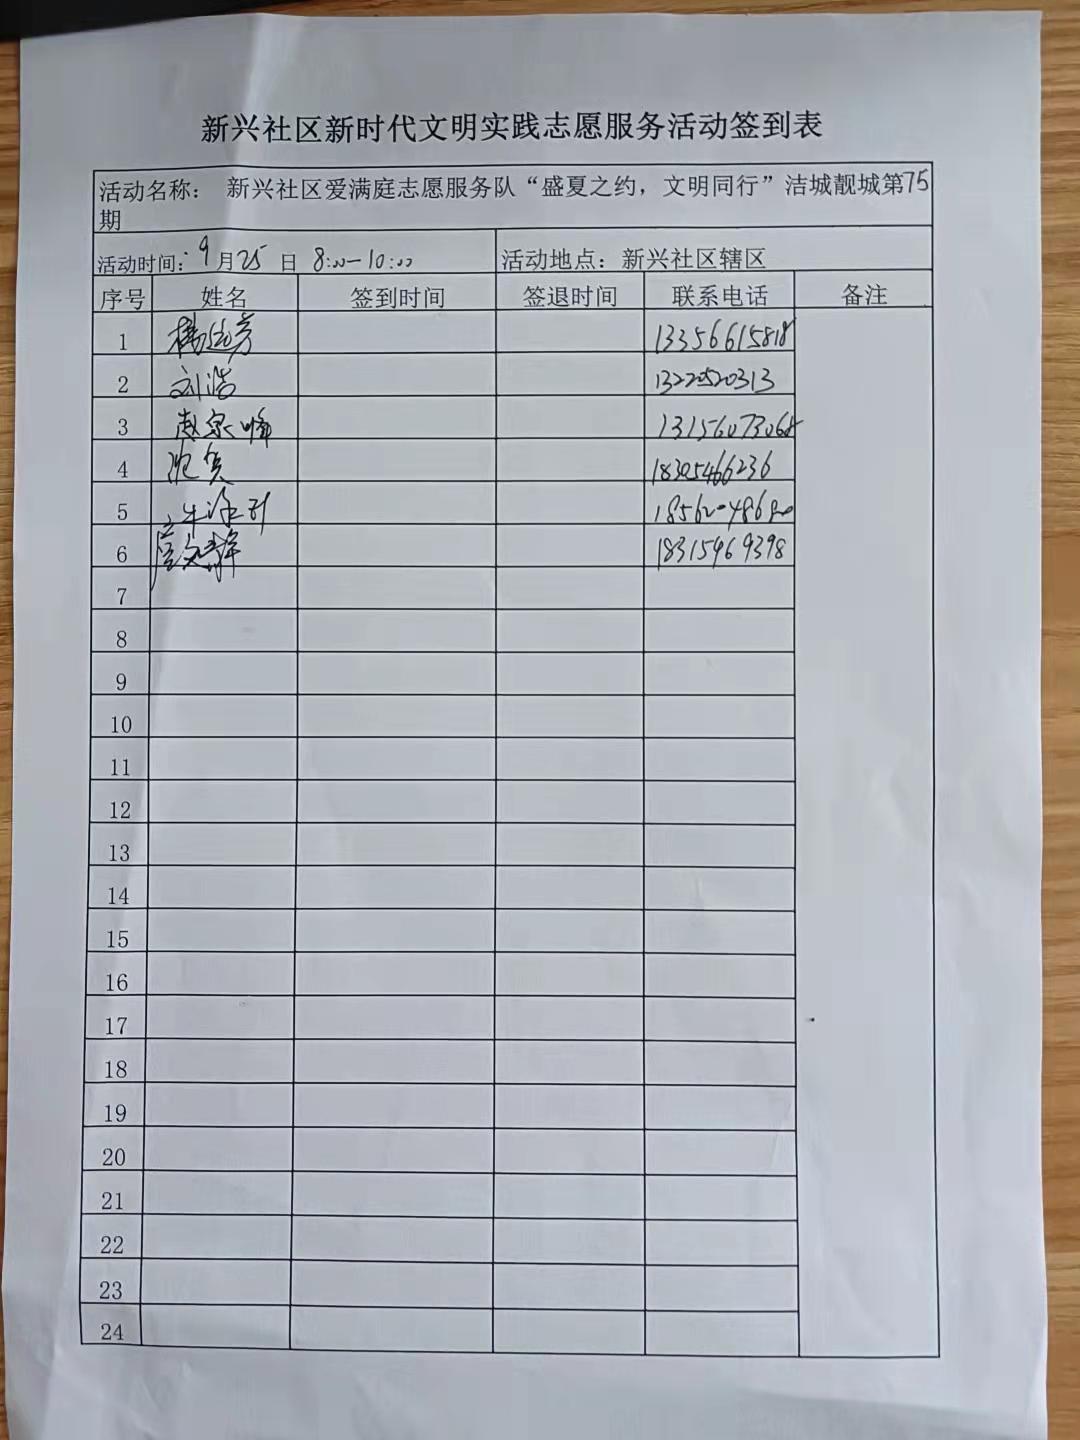 新兴社区新时代文明实践志愿服务活动签到表
活动名称： 新兴社区爱满庭志愿服务队“盛夏之约，文明同行”洁城靓城第75
期
活动时间：9月25日 8:00—10:00 活动地点：新兴社区辖区
序号 姓名 签到时间 签退时间 联系电话 备注
1 13356615818
2 刘浩 13220520313
3 赵泉峰 13156073068
4 沈贺 18305466236
5
6 18315469398
7
8
9
10
11
12
13
14
15
16
17
18
19
20
21
22
23
24